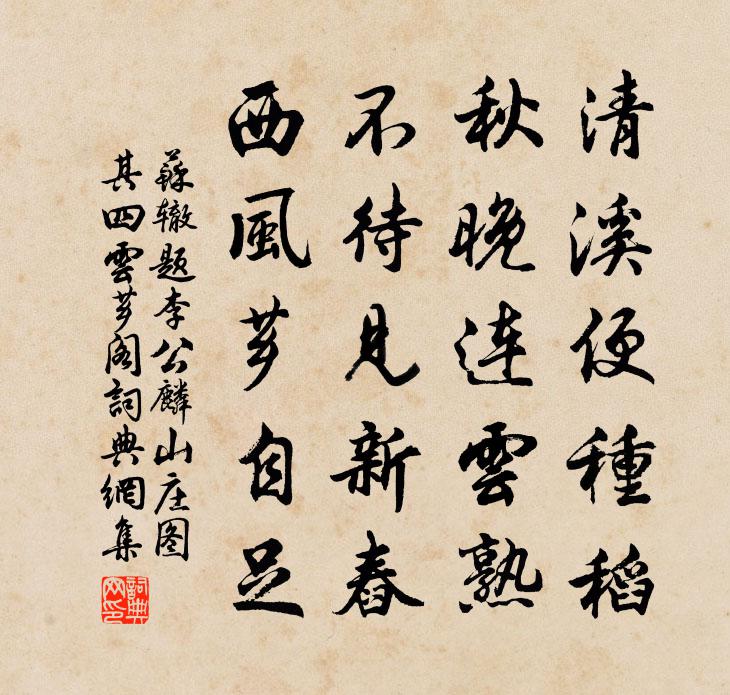 清溪便種稻
秋晚連雲熟
不待見新舂
西風芗自足
蘇辙题李公麟山庄图
其四雲芗阁詞典網集
詞典
网印